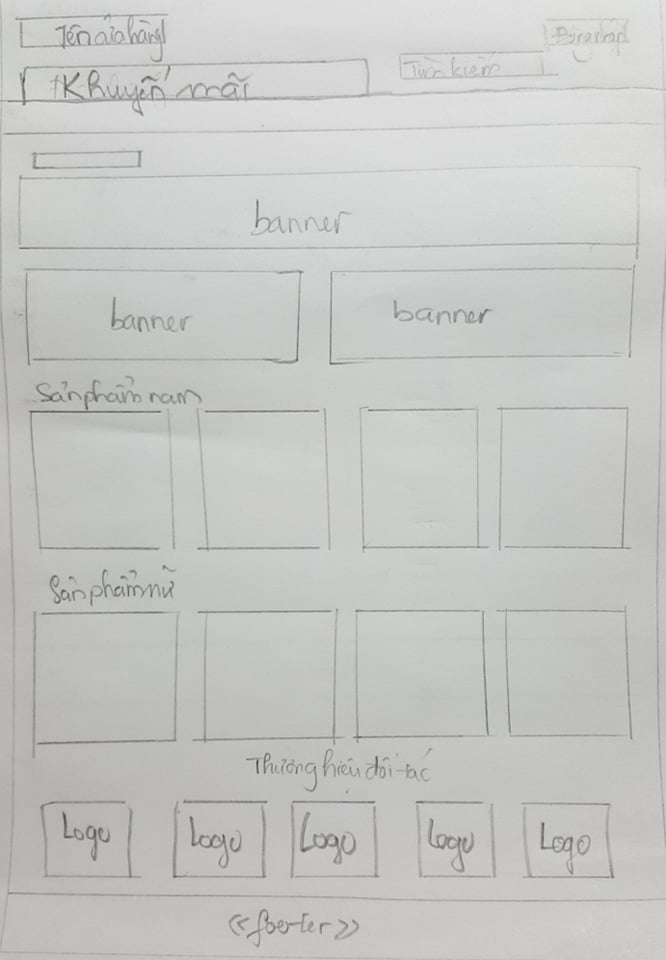 Tên cửa hàng
Đăng nhập
Tìm kiếm
Khuyến mãi
banner
banner banner
Sản phẩm nam
Sản phẩm nữ
Thương hiệu đối tác
Logo Logo Logo Logo Logo
<<footer>>